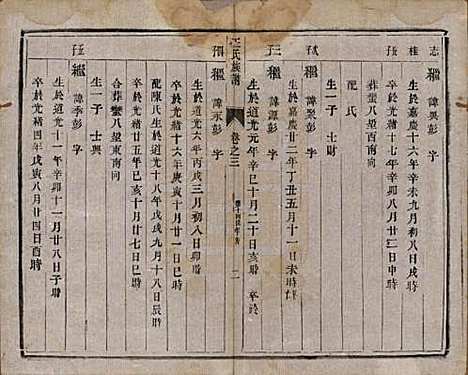 志
桂 繼 諱與彭 字
生於嘉慶十六年辛未九月初八日戌時
卒於光緒十七年辛卯八月廿二日申時
葬蠻八壆西南向
配 氏
生一子 士財
繼 諱彭 字
生於嘉慶廿二年丁丑五月十一日未時
繼 諱彭 字
生於道光元年辛巳十月二十日亥時 卒於
氏族譜
卷之三
二
繼 諱永彭 字
生於道光六年丙戌三月初八日卯時
卒於光緒十六年庚寅三月廿一日巳時
配陳氏生於道光十八年戊戌九月十八日辰時
卒於光緒廿五年己亥十月廿七日巳時
合葬蠻八壆東南向
生一子 士興
繼 諱季彭 字
生於道光十一年辛卯十一月廿八日子時
卒於光緒四年戊寅八月廿四日酉時